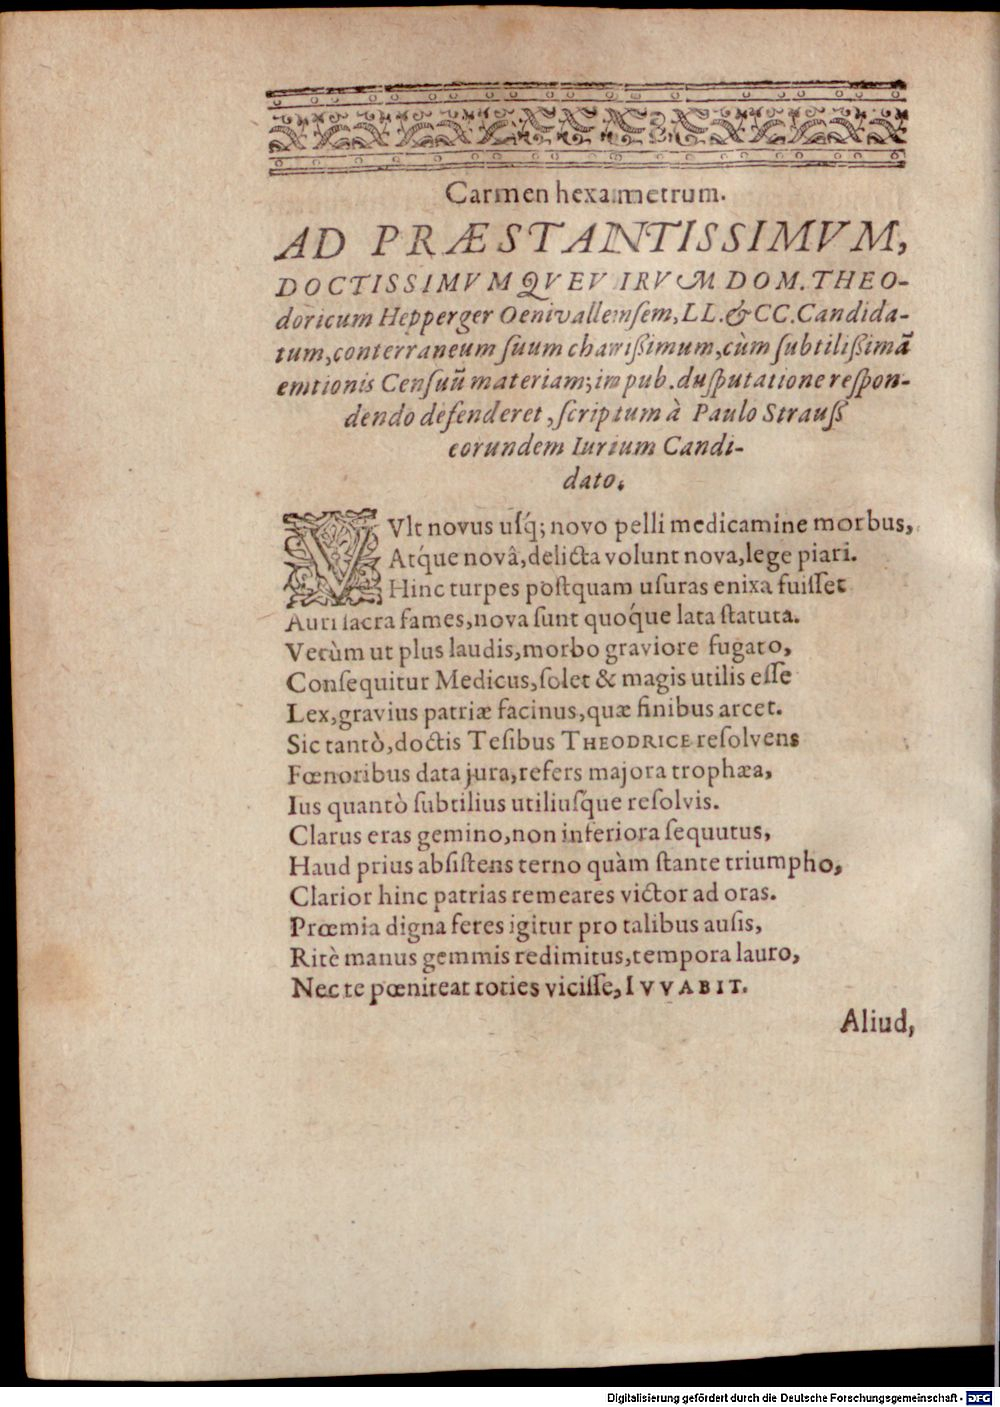 Carmen hexametrum.
AD PRÆSTANTISSIMVM,
DOCTISSIMVMQVEVIRVM DOM. THEO-
doricum Hepperger Oenivallemſem, LL. & CC. Candida-
tum, conterraneum ſuum chariſsimum, cùm ſubtiliſsimã
emtionis Cenſuũ materiam, in pub. duſputatione reſpon-
dendo defenderet, ſcriptum à Paulo Strauſſ
eorundem Iurium Candi-
dato.
VVlt novus uſq́; novo pelli medicamine morbus,
Atq́ue novâ, delicta volunt nova, lege piari.
Hinc turpes poſtquam uſuras enixa fuiſſet
Auri ſacra fames, nova ſunt quoq́ue lata ſtatuta.
Verùm ut plus laudis, morbo graviore fugato,
Conſequitur Medicus, ſolet & magis utilis eſſe
Lex, gravius patriæ facinus, quæ finibus arcet.
Sic tantò, doctis Teſibus THEODRICE reſolvens
Fœnoribus data jura, refers majora trophæa,
Ius quantò ſubtilius utiliuſq́ue reſolvis.
Clarus eras gemino, non inferiora ſequutus,
Haud prius abſiſtens terno quàm ſtante triumpho,
Clarior hinc patrias remeares victor ad oras.
Prœmia digna feres igitur pro talibus auſis,
Ritè manus gemmis redimitus, tempora lauro,
Nec te pœniteat toties viciſſe, IVVABIT.
Aliud,
Digitalisierung gefördert durch die Deutsche Forschungsgemeinschaft - DFG